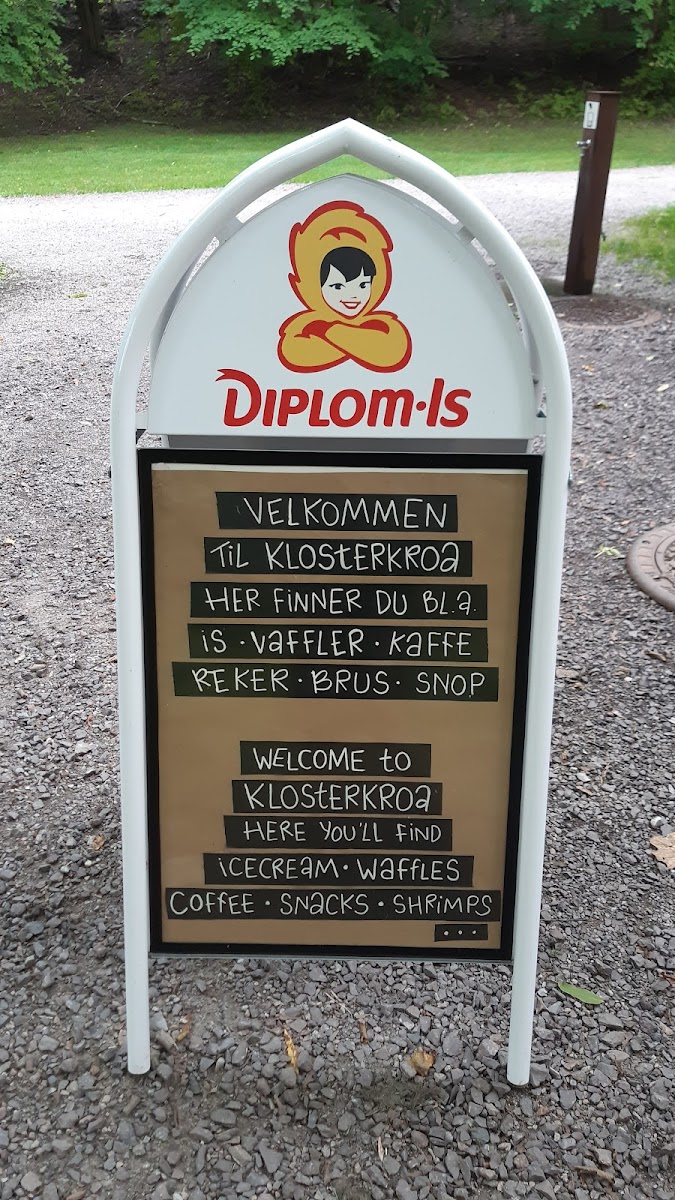 DIPLOM·IS
VELKOMMEN
TIL KLOSTERKROA
HER FINNER DU BL.A.
IS · VAFFLER · KAFFE
REKER · BRUS · SNOP
WELCOME to
KLOSTERKROA
HERE YOU'LL FIND
ICECREAM · WAFFLES
COFFEE · SNACKS · SHRIMPS
...